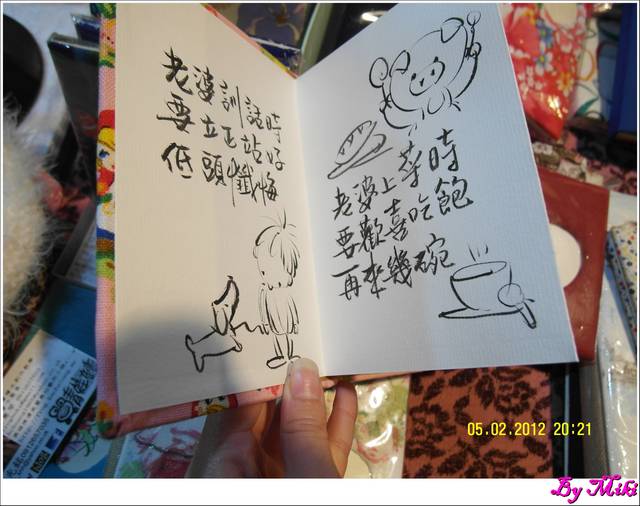 老婆訓話時
要立正站好
低頭懺悔
老婆上菜時
要歡喜吃飽
再來幾碗
05.02.2012 20:21
By Miki